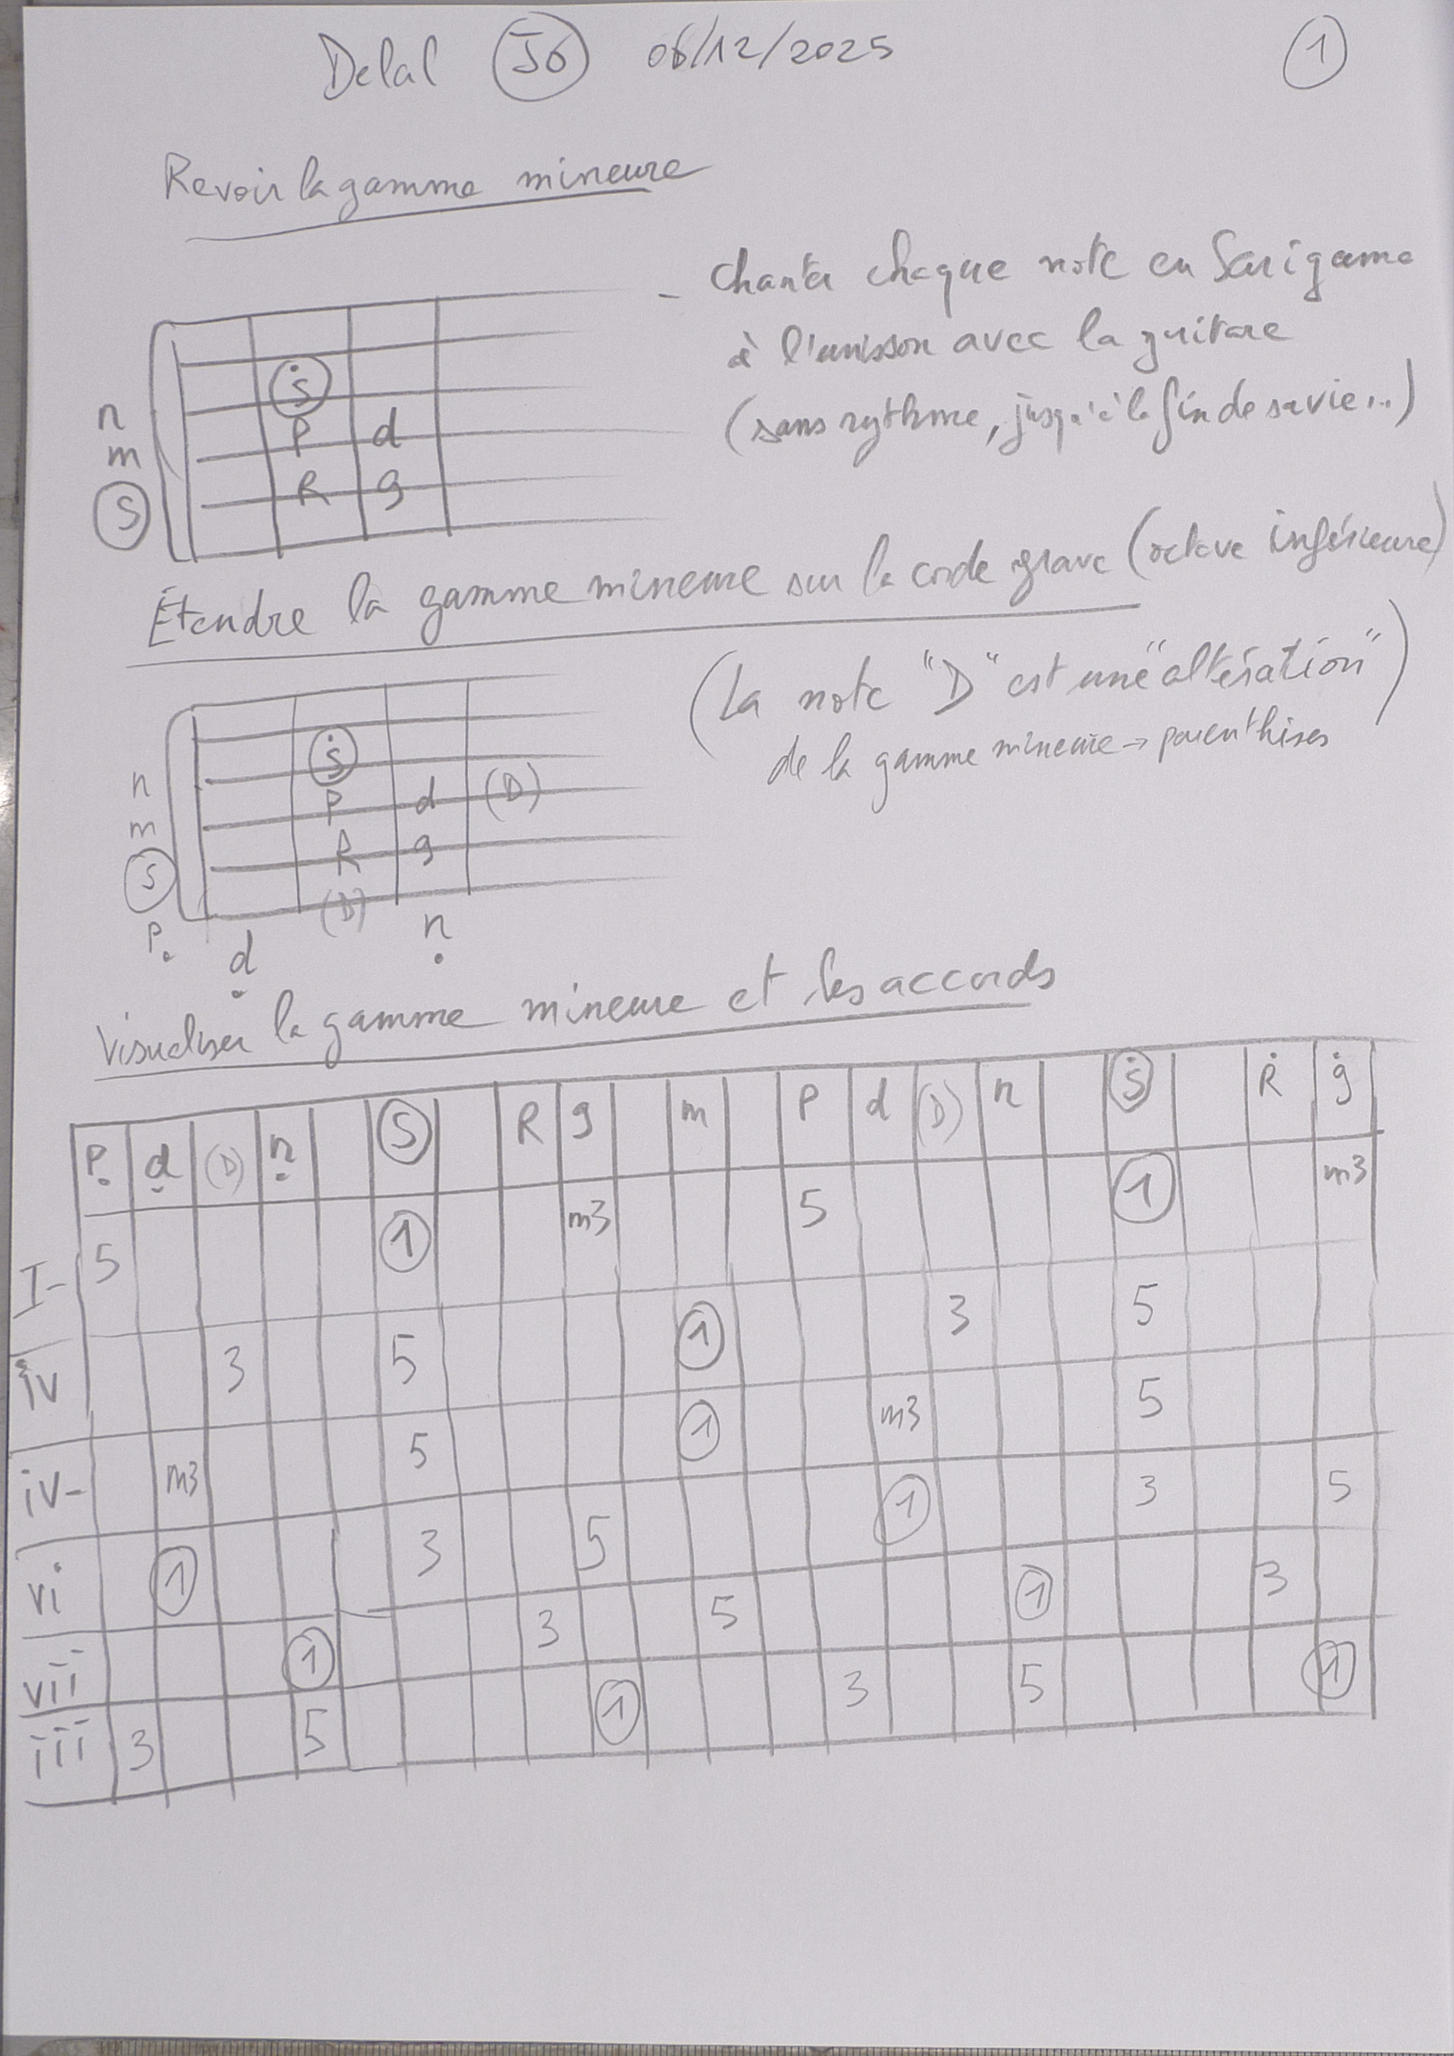 Delal J6 06/12/2025 1
Revoir la gamme mineure
- Chanter chaque note en Sarigama
à l'unisson avec la guitare
(sans rythme, jusqu'à la fin de sa vie...)
Ṡ
n P d
m R g
S
Étendre la gamme mineure sur la corde grave (octave inférieure)
(La note "D" est une "altération"
de la gamme mineure → parenthèses
Ṡ
n P d (D)
m R g
S (D)
P. ḍ ṇ
Visualiser la gamme mineure et les accords
P. ḍ (D) ṇ S R g m P d (D) n Ṡ Ṙ ġ
I- 5 1 m3 5 1 m3
iv 3 5 1 3 5
iv- m3 5 1 m3 5
vi 1 3 5 1 3 5
vii 1 3 5 1 3
iii 3 5 1 3 5 1